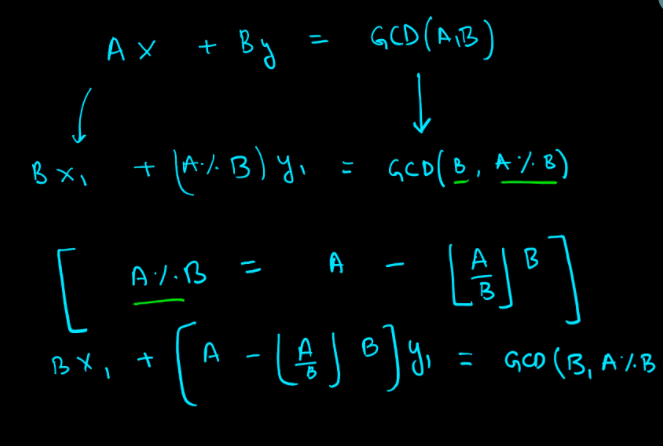 Ax + By = GCD(A,B)
Bx₁ + (A%B)y₁ = GCD(B, A%B)
[A%B = A - ⌊A/B⌋B]
Bx₁ + [A - ⌊A/B⌋B]y₁ = GCD(B, A%B